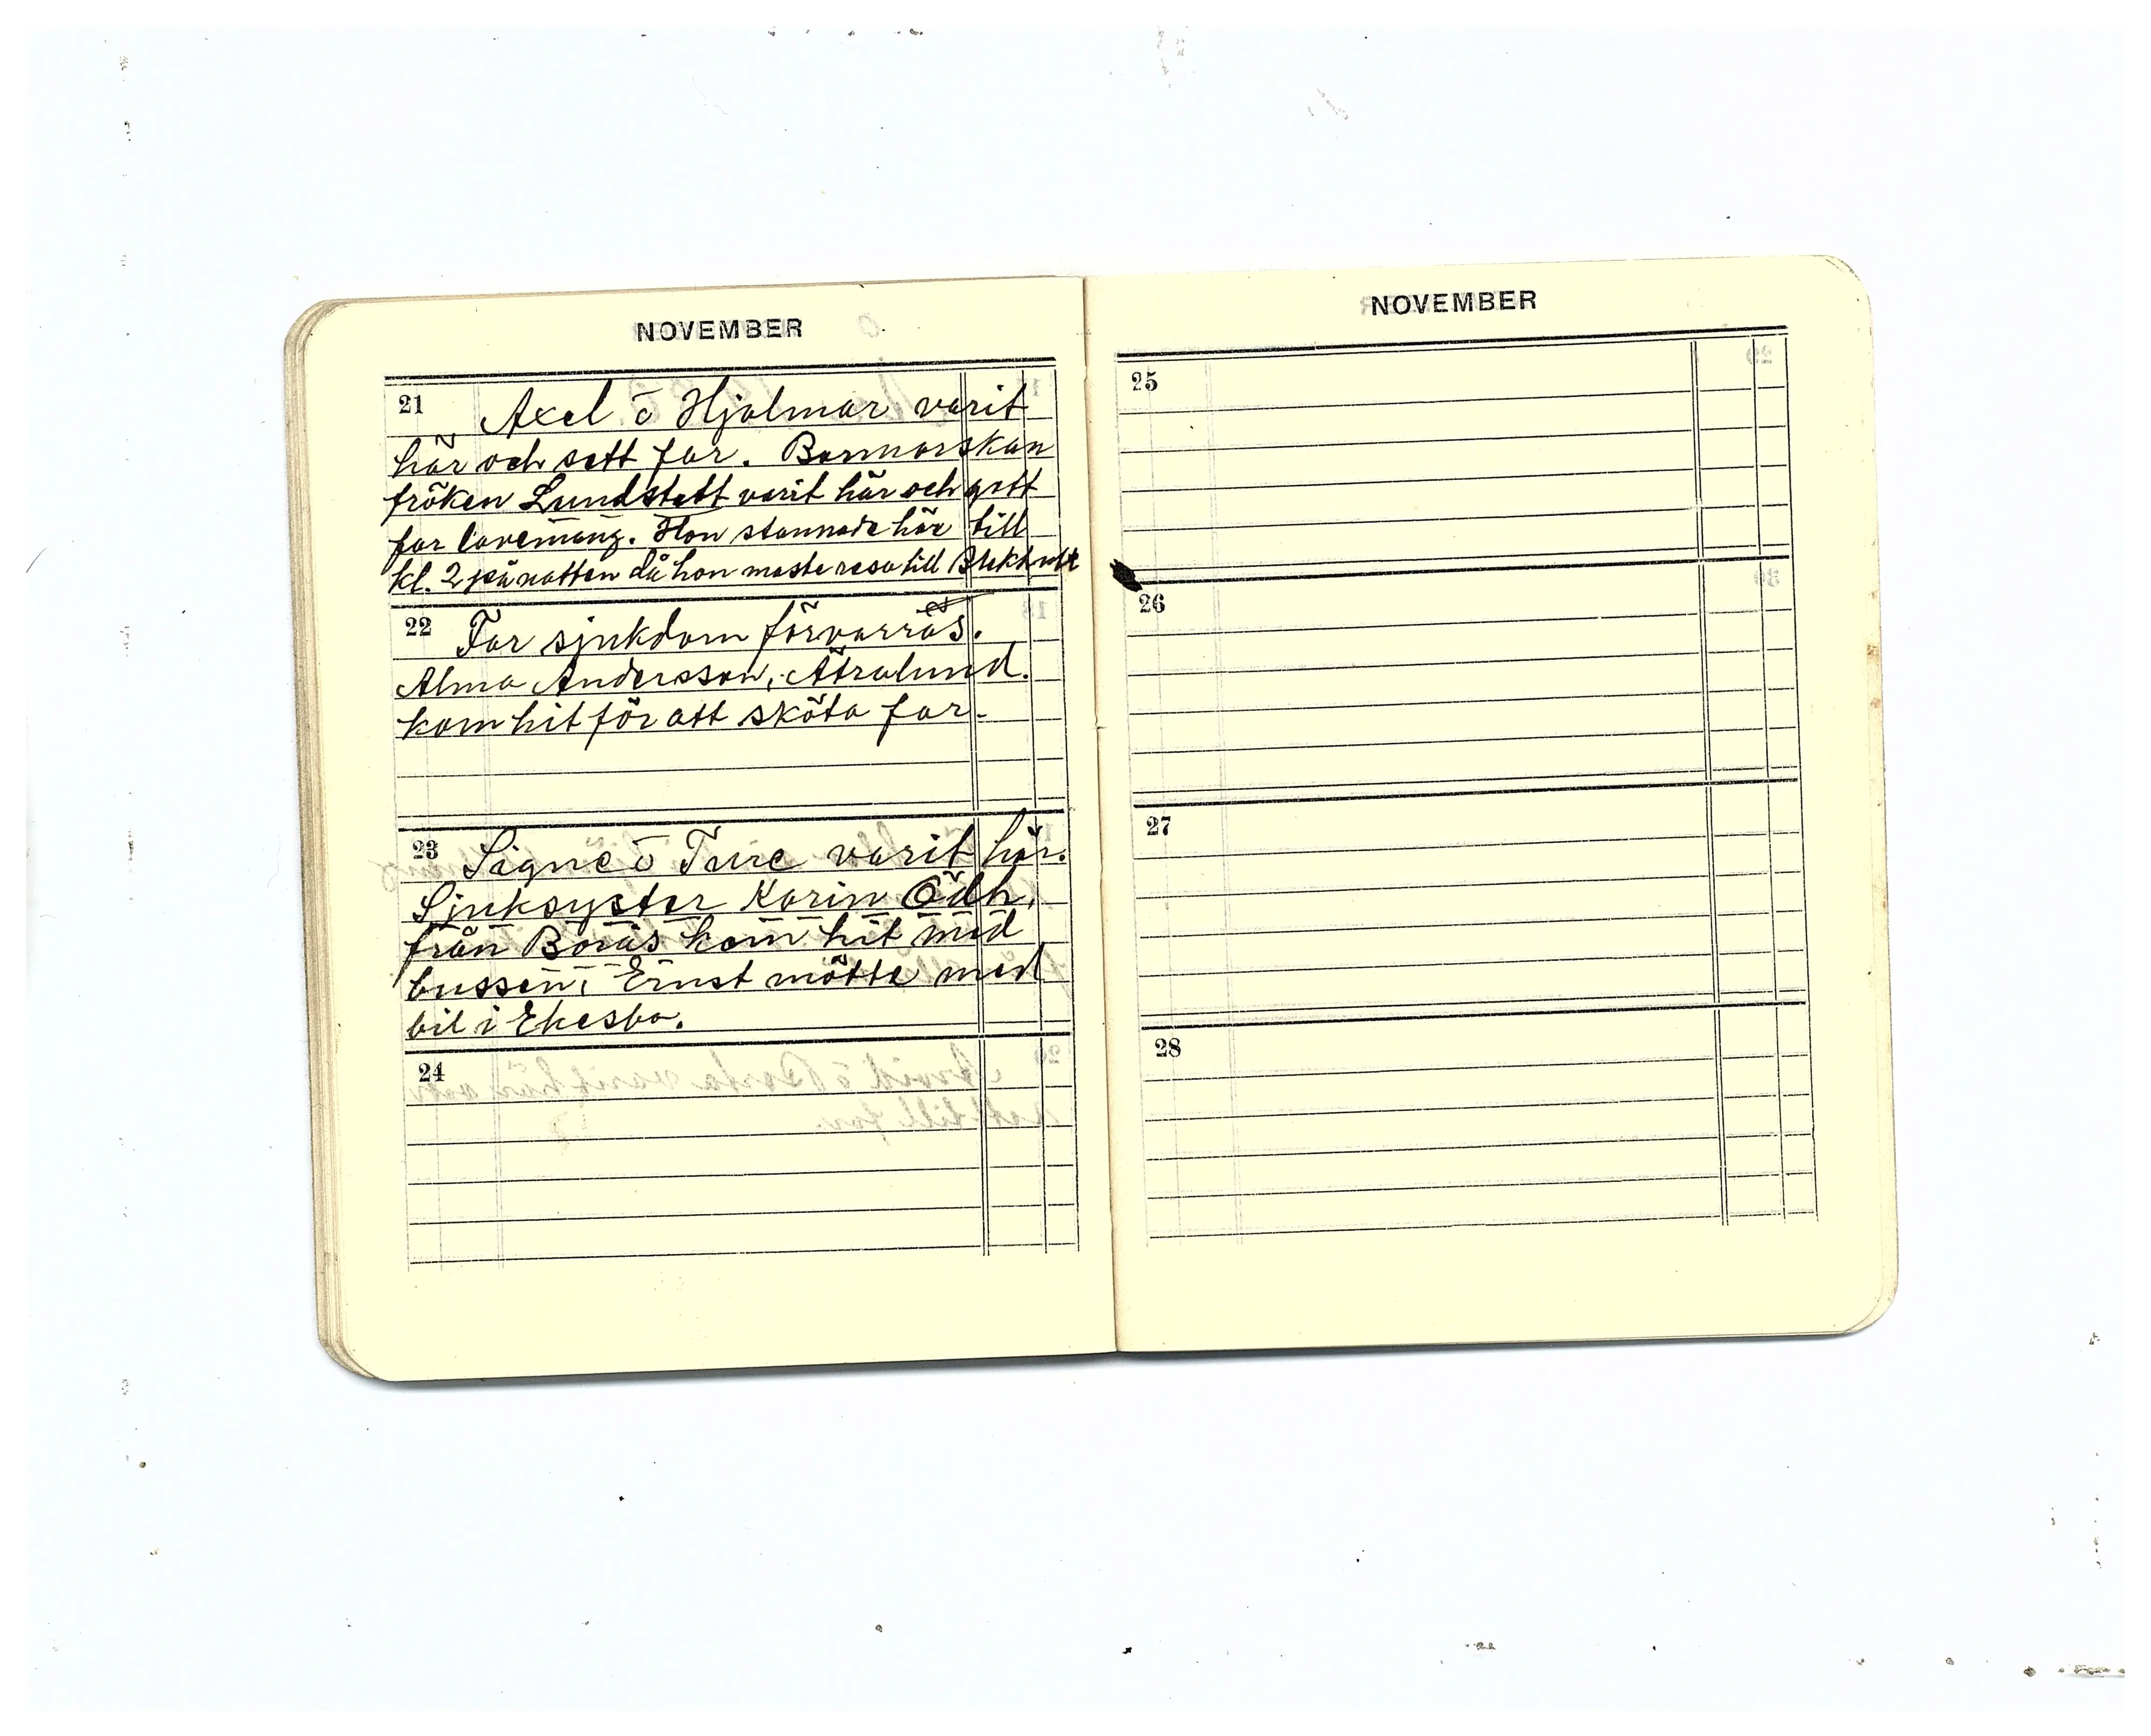 NOVEMBER
21 Axel o Hjalmar varit
här och sett far. Barnmorskan
fröken Lundstett varit här och gett
far lavemang. Hon stannade här till
kl. 2 på natten då hon maste resa till
22 Far sjukdom förvarräs.
Alma Andersson, Ätralund.
kom hit för att sköta far.
23 Signe o Ture varit här.
Sjuksyster Karin Ödh,
från Borås kom hit med
bussen, Ernst mötte med
bil i Ekesbo.
24
NOVEMBER
25
26
27
28